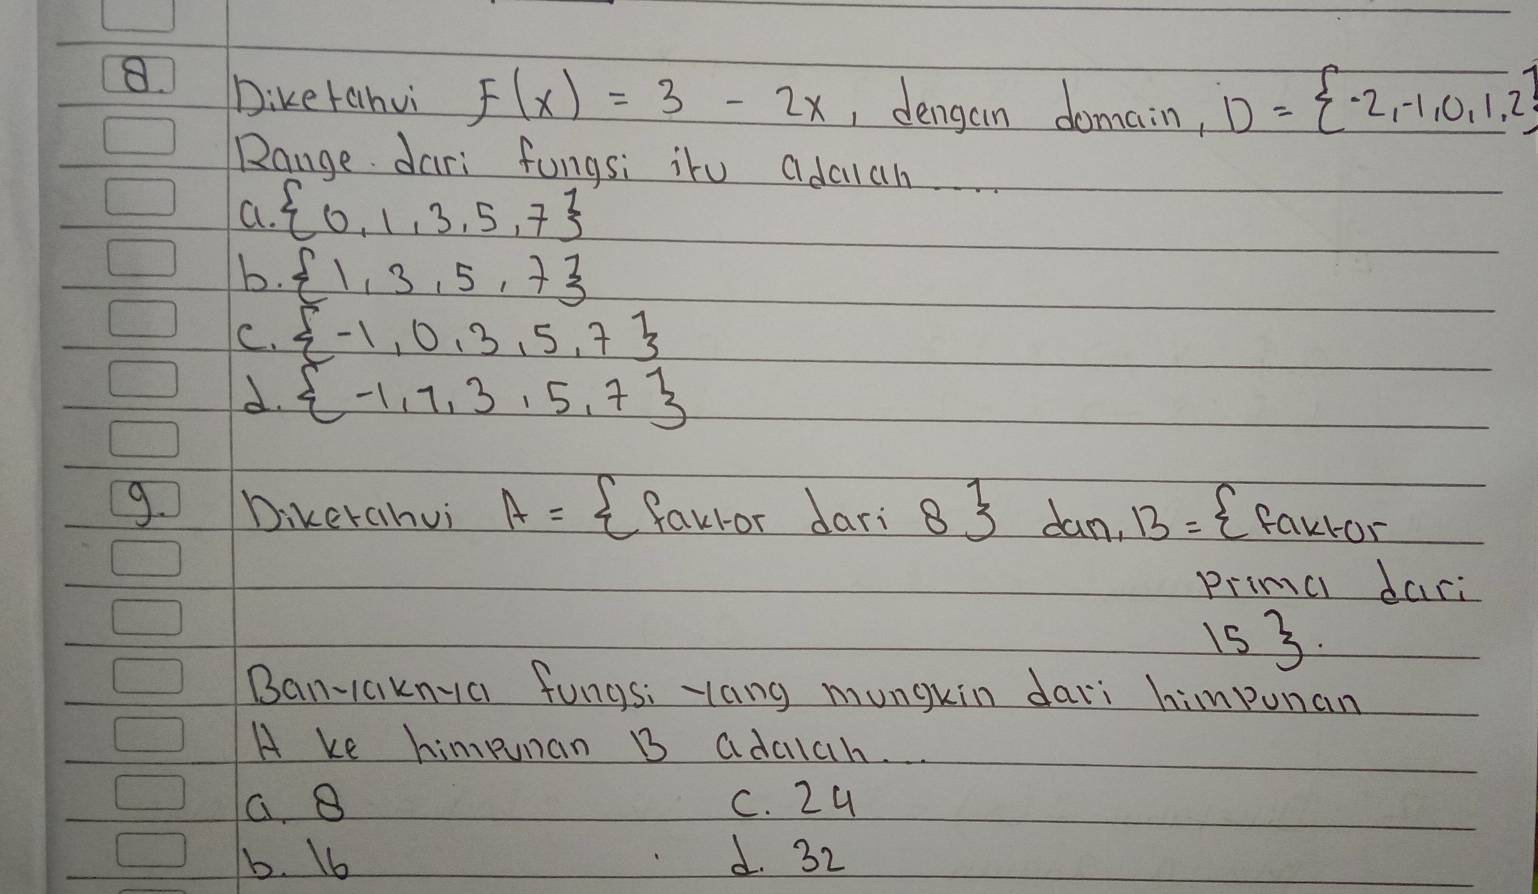 8. Diketahui F(x) = 3 - 2x, dengan domain, D = {-2,-1,0,1,2}
Range dari fungsi itu adalah....
a. {0, 1, 3, 5, 7}
b. {1, 3, 5, 7}
c. {-1, 0, 3, 5, 7}
d. {-1, 1, 3, 5, 7}
9. Diketahui A = {faktor dari 8} dan, B = {faktor
prima dari
15}.
Banyaknya fungsi yang mungkin dari himpunan
A ke himpunan B adalah...
a. 8 c. 24
b. 16 d. 32